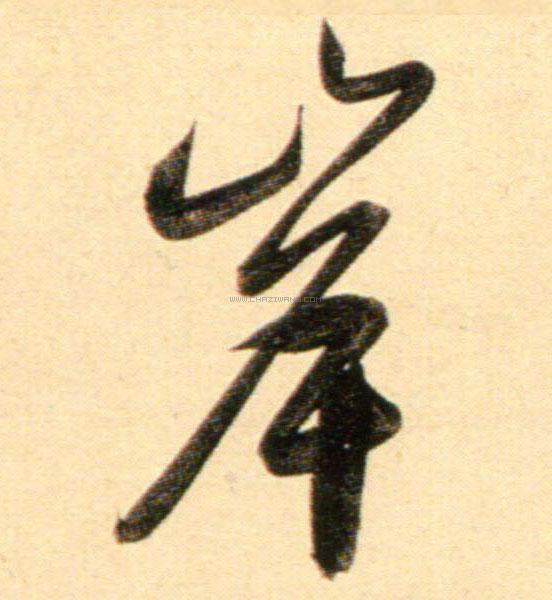 岸
WWW.CHAZIWANG.COM